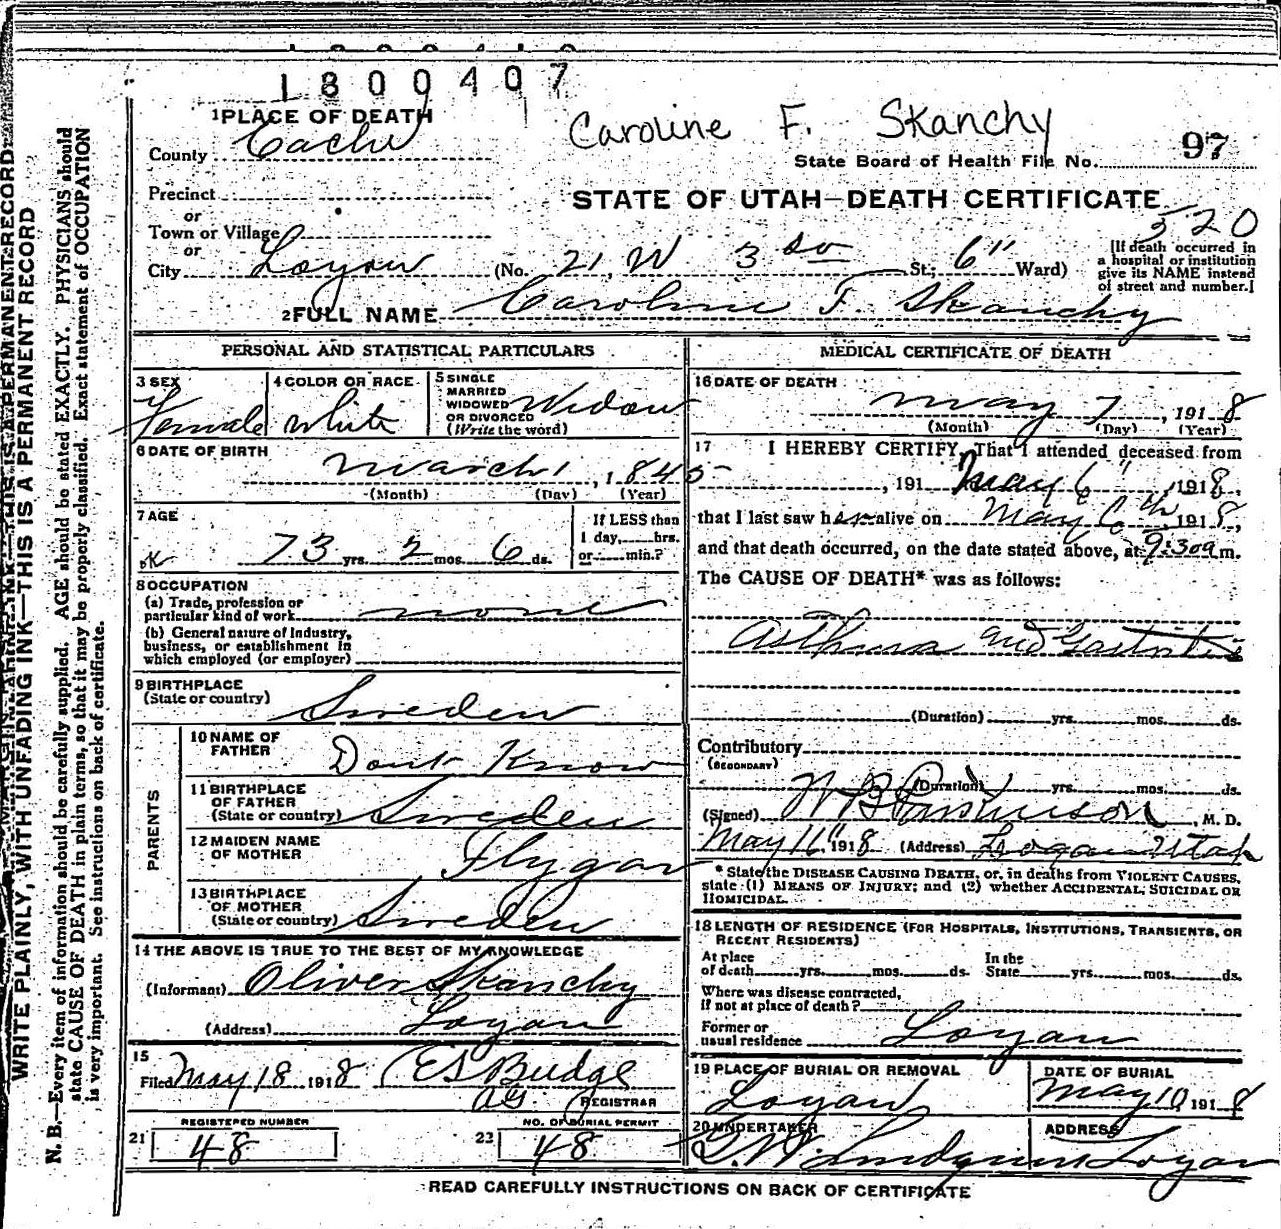 1800407
Caroline F. Skanchy
1 PLACE OF DEATH
County Cache
State Board of Health File No. 97
Precinct
STATE OF UTAH—DEATH CERTIFICATE
or
Town or Village
520
or
City Logan (No. 21 W 3 So St.; 6" Ward)
[If death occurred in
a hospital or institution
give its NAME instead
of street and number.]
2 FULL NAME Caroline F. Skanchy
PERSONAL AND STATISTICAL PARTICULARS
3 SEX
Female
4 COLOR OR RACE
White
5 SINGLE
MARRIED
WIDOWED
OR DIVORCED
(Write the word)
Widow
6 DATE OF BIRTH
March 1, 1845
(Month) (Day) (Year)
7 AGE
73 yrs. 2 mos. 6 ds.
If LESS than
1 day, hrs.
or min.?
8 OCCUPATION
(a) Trade, profession or
particular kind of work none
(b) General nature of Industry,
business, or establishment in
which employed (or employer)
9 BIRTHPLACE
(State or country) Sweden
PARENTS
10 NAME OF
FATHER Dont Know
11 BIRTHPLACE
OF FATHER
(State or country) Sweden
12 MAIDEN NAME
OF MOTHER Flygar
13 BIRTHPLACE
OF MOTHER
(State or country) Sweden
14 THE ABOVE IS TRUE TO THE BEST OF MY KNOWLEDGE
(Informant) Oliver Skanchy
(Address) Logan
15
Filed May 18 1918 E S Budge
REGISTRAR
REGISTERED NUMBER
21 48
NO. OF BURIAL PERMIT
23 48
MEDICAL CERTIFICATE OF DEATH
16 DATE OF DEATH
May 7, 1918
(Month) (Day) (Year)
17 I HEREBY CERTIFY, That I attended deceased from
, 191 May 6", 1918,
that I last saw her alive on May 6th, 1918,
and that death occurred, on the date stated above, at 9:30a m.
The CAUSE OF DEATH* was as follows:
Asthma and Gastritis
(Duration) yrs. mos. ds.
Contributory
(SECONDARY)
(Duration) yrs. mos. ds.
(Signed) W B Parkinson, M. D.
May 11" 1918 (Address) Logan Utah
* State the DISEASE CAUSING DEATH, or, in deaths from VIOLENT CAUSES,
state (1) MEANS OF INJURY; and (2) whether ACCIDENTAL, SUICIDAL OR
HOMICIDAL.
18 LENGTH OF RESIDENCE (FOR HOSPITALS, INSTITUTIONS, TRANSIENTS, OR
RECENT RESIDENTS)
At place
of death yrs. mos. ds.
In the
State yrs. mos. ds.
Where was disease contracted,
if not at place of death?
Former or
usual residence Logan
19 PLACE OF BURIAL OR REMOVAL
Logan
DATE OF BURIAL
May 10, 1918
20 UNDERTAKER
ADDRESS
Logan
READ CAREFULLY INSTRUCTIONS ON BACK OF CERTIFICATE
WRITE PLAINLY, WITH UNFADING INK—THIS IS A PERMANENT RECORD
N. B.—Every item of information should be carefully supplied. AGE should be stated EXACTLY. PHYSICIANS should
state CAUSE OF DEATH in plain terms, so that it may be properly classified. Exact statement of OCCUPATION
is very important. See instructions on back of certificate.